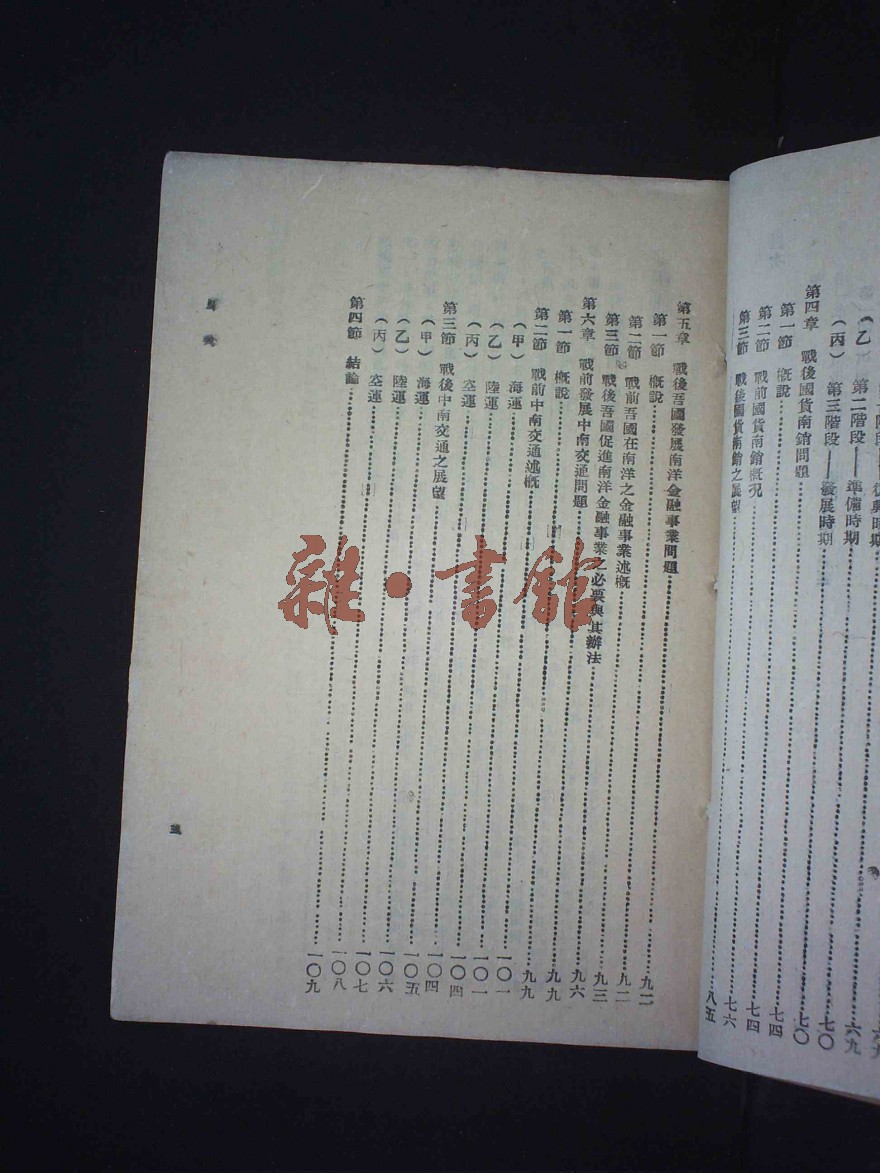 階段——復興時期……六九
(乙) 第二階段——準備時期……七〇
(丙) 第三階段——發展時期……七〇
第四章 戰後國貨南銷問題……七四
第一節 概說……七四
第二節 戰前國貨南銷概況……七六
第三節 戰後國貨南銷之展望……八五
第五章 戰後吾國發展南洋金融事業問題……九二
第一節 概說……九二
第二節 戰前吾國在南洋之金融事業述概……九三
第三節 戰後吾國促進南洋金融事業之必要與其辦法……九六
第六章 戰前發展中南交通問題……九九
第一節 概說……九九
第二節 戰前中南交通述概……一〇一
(甲) 海運……一〇一
(乙) 陸運……一〇四
(丙) 空運……一〇四
第三節 戰後中南交通之展望……一〇五
(甲) 海運……一〇六
(乙) 陸運……一〇七
(丙) 空運……一〇八
第四節 結論……一〇九
目次
三
雜·書館